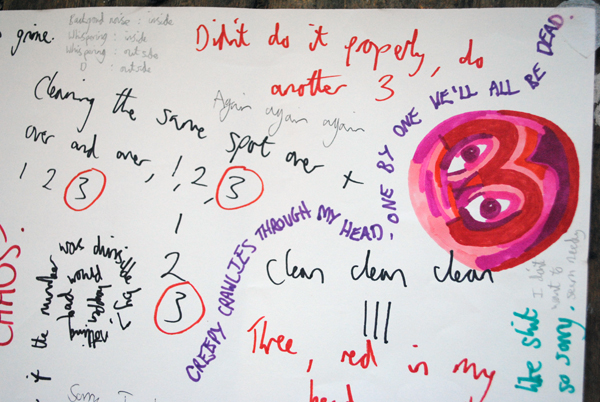 grime.
Background noise : inside
Whispering : inside
Whispering : outside
: outside
Didn't do it properly, do
another 3
Cleaning the same spot over
over and over, 1, 2, 3
Again again again
+
1 2 3
1
2
3
CREEPY CRAWLIES THROUGH MY HEAD. ONE BY ONE WE'LL ALL BE DEAD.
clean clean clean
|||
Three, red in my
head
CHAOS
the number
was
bad would
happen
like shit
so sorry.
I don't
want to
seem needy
Sorry I